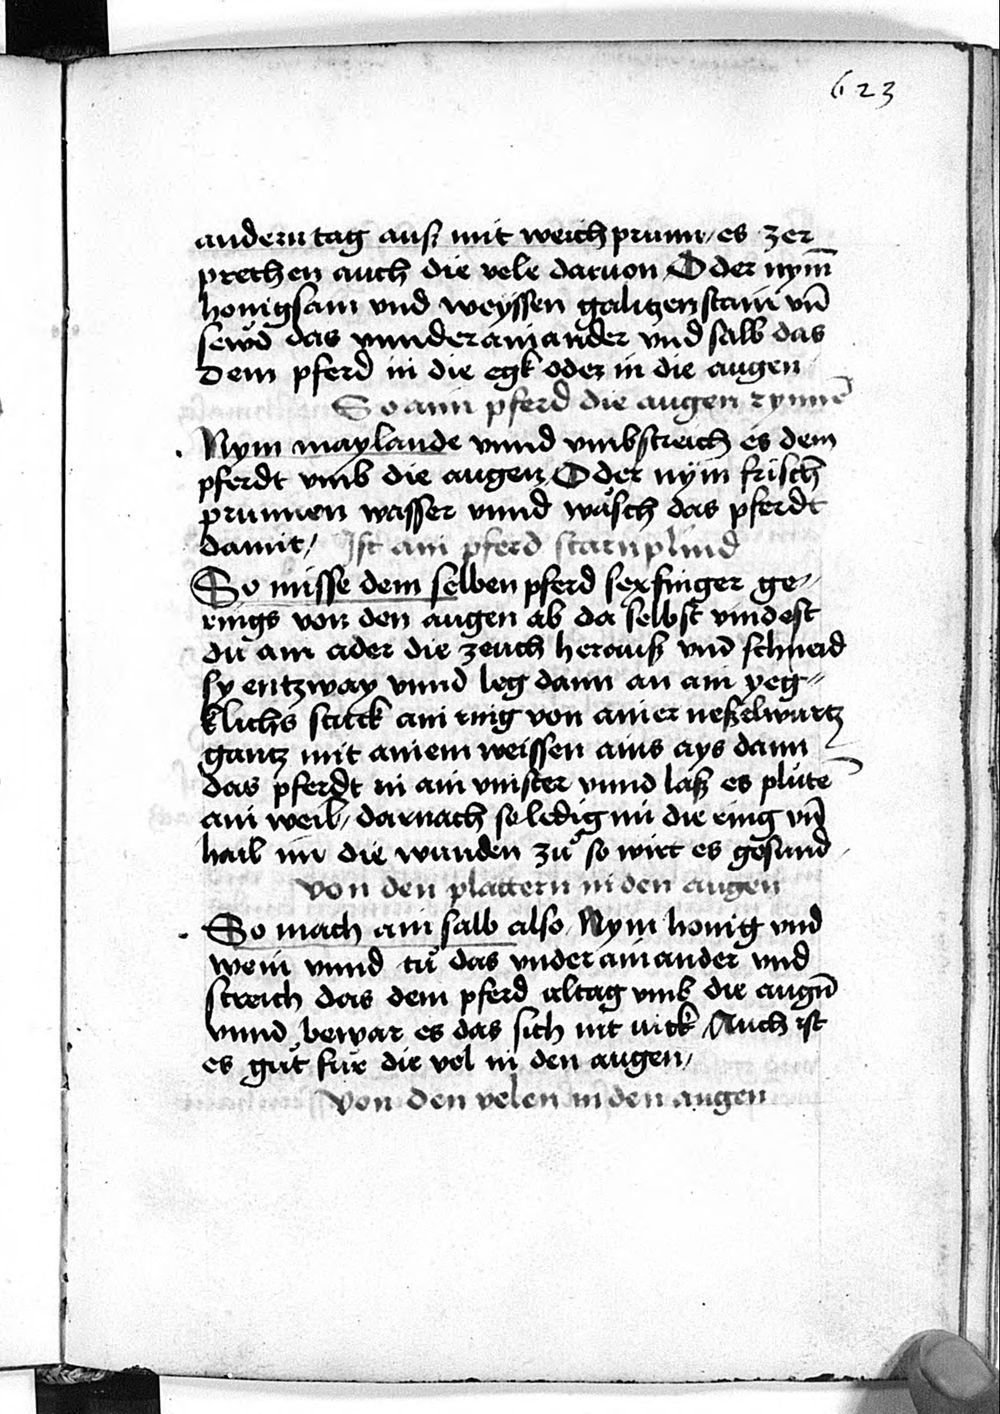 623
andern tag auß mit weich prunn / es zer
prechen auch die vele daruon Oder nym̄
honigsam vnd weyssen galigenstain vn̄
sewd das vnnder ainander vnd salb das
dem pferd in die egk oder in die augen
So ainn pferd die augen rynnē
Nym maylande vnnd vmbstreich es dem
pferdt vmb die augen Oder nym frisch
prunnen wasser vnnd wasch das pferdt
damit / Ist ain pferd starnplind
So misse dem selben pferd sex finger ge=
rings von den augen ab da selbst vindest
du ain ader die zeuch herauß vnd schneid
sy entzway vnnd leg dann an ain yeg=
klichs stuck ain ring von ainer neßelwurtz
gantz mit ainem weissen ains ays dann
das pferdt in ain vinster vnnd laß es plutē
ain weil / darnach so ledig im die ring vn̄
hail im die wunden zů so wirt es gesund
Von den plattern in den augen
So mach ain salb also / Nym honig vnd
wein vnnd tů das vnder ainander vnd
streich das dem pferd altag vmb die augn̄
vnnd bewar es das sich nit Auch ist
es gůt für die vel in den augen /
Von den velen in den augen